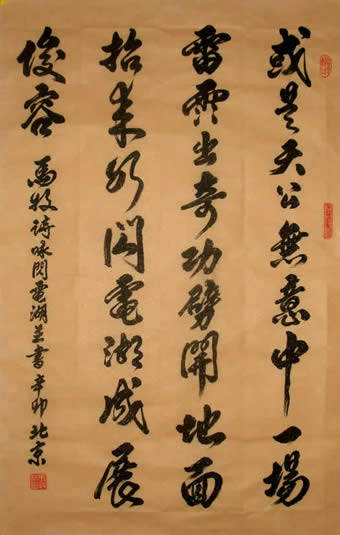 或是天公無意中一場
雷出奇功劈開地面
閃電湖成展
俊容
馬牧詩咏閃電湖並書辛卯北京